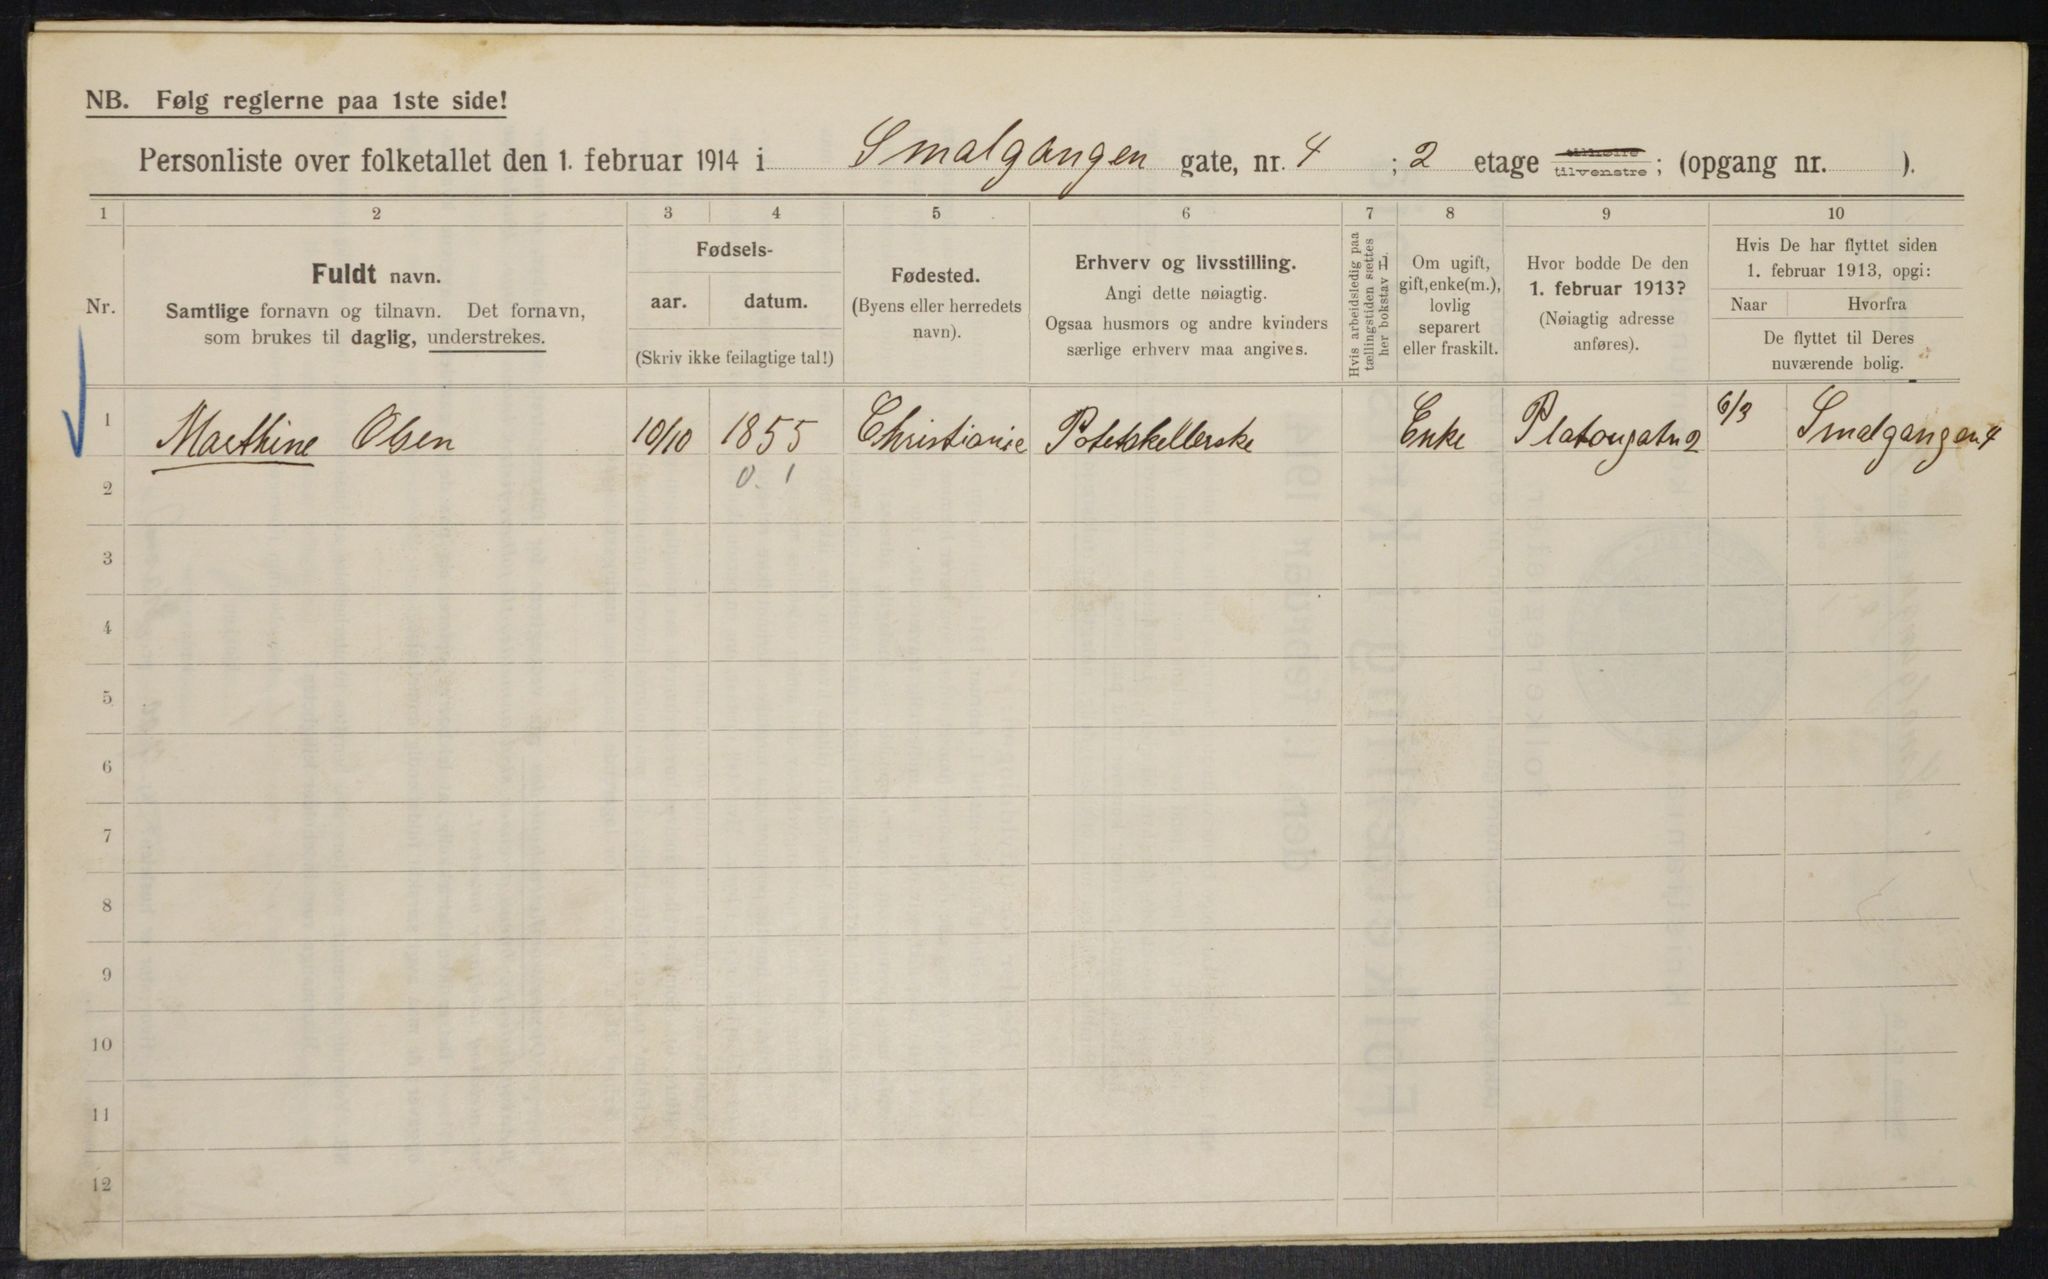 NB. Følg reglerne paa 1ste side!
Personliste over folketallet den 1. februar 1914 i Smalgangen gate, nr. 4 ; 2 etage tilhøire tilvenstre ; (opgang nr. ).
1 2 3 4 5 6 7 8 9 10
Nr.
Fuldt navn.
Samtlige fornavn og tilnavn. Det fornavn,
som brukes til daglig, understrekes.
Fødsels-
aar. datum.
(Skriv ikke feilagtige tal!)
Fødested.
(Byens eller herredets
navn).
Erhverv og livsstilling.
Angi dette nøiagtig.
Ogsaa husmors og andre kvinders
særlige erhverv maa angives.
Hvis arbeidsledig paa
tællingstiden sættes
her bokstav L.
Om ugift,
gift, enke(m.),
lovlig
separert
eller fraskilt.
Hvor bodde De den
1. februar 1913?
(Nøiagtig adresse
anføres).
Hvis De har flyttet siden
1. februar 1913, opgi:
Naar Hvorfra
De flyttet til Deres
nuværende bolig.
1 Marthine Olsen 10/10 1855 Christiania Enke Platougatn 2 6/3 Smalgangen 4
0. 1
2
3
4
5
6
7
8
9
10
11
12